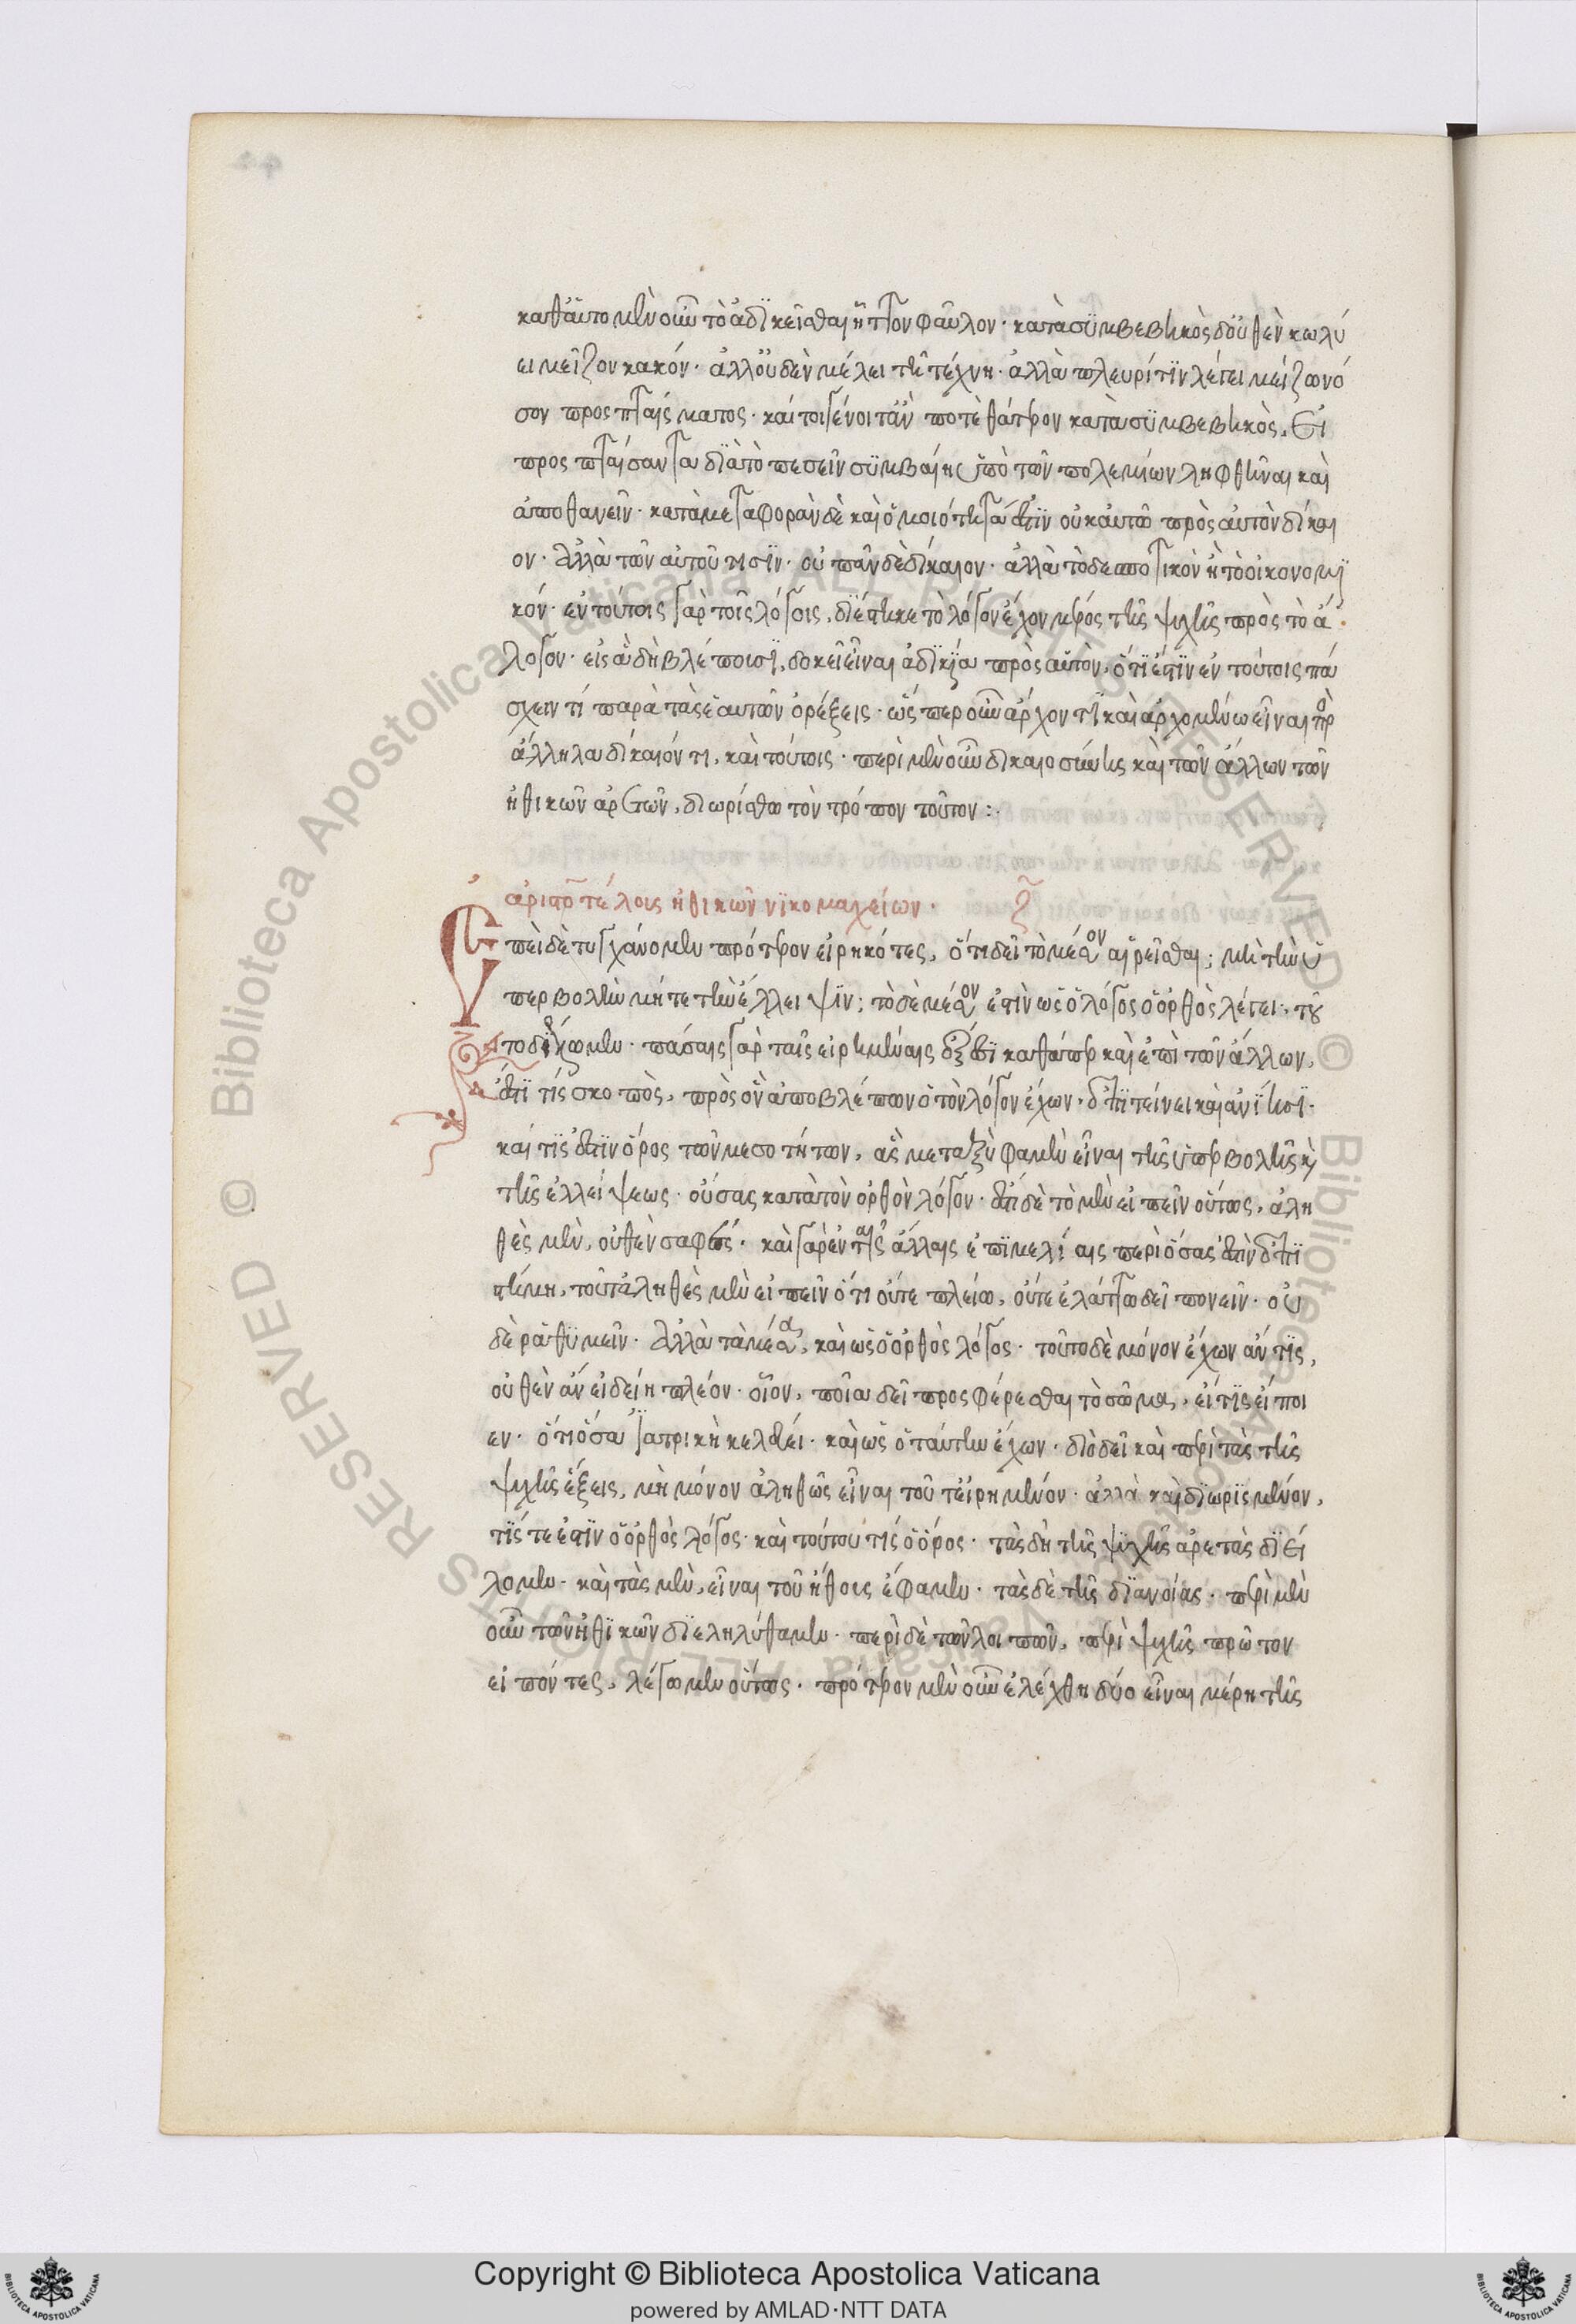 καθαὑτο μὲν οὖν τὸ ἀδικεῖσθαι ἧττον φαῦλον· κατὰ συμβεβηκὸς δ' οὐθὲν κωλύ
ει μεῖζον κακόν· ἀλλ' οὐδὲν μέλει τῆ τέχνη· ἀλλὰ πλευρίτιν λέγει μείζω νό
σον προσπταίσματος· καί τοι γένοιτ' ἄν ποτε θάτερον κατὰ συμβεβηκὸς, εἰ
προσπταίσαντα διὰ τὸ πεσεῖν συμβαίη ὑπὸ τῶν πολεμίων ληφθῆναι καὶ
ἀποθανεῖν· κατὰ μεταφορὰν δὲ καὶ ὁμοιότητά ἐστιν οὐκ αὐτῶ πρὸς αὐτὸν δίκαι
ον· ἀλλὰ τῶν αὐτοῦ τισίν· οὐ πᾶν δὲ δίκαιον· ἀλλὰ τὸ δεσποτικὸν ἢ τὸ οἰκονομι
κόν· ἐν τούτοις γὰρ τοῖς λόγοις, διέστηκε τὸ λόγον ἔχον μέρος τῆς ψυχῆς πρὸς τὸ ἄ
λογον· εἰς ἃ δὴ βλέπουσι, δοκεῖ εἶναι ἀδικία πρὸς αὑτὸν, ὅτι ἐστὶν ἐν τούτοις πά
σχειν τί παρὰ τὰς ἑαυτῶν ὀρέξεις· ὥσπερ οὖν ἄρχοντι καὶ ἀρχομένω εἶναι πρὸς
ἄλληλα δίκαιόν τι, καὶ τούτοις· περὶ μὲν οὖν δικαιοσύνης καὶ τῶν ἄλλων τῶν
ἠθικῶν ἀρετῶν, διωρίσθω τὸν τρόπον τοῦτον:·
ἀριστοτέλους ἠθικῶν νικομαχείων·
Ἐπεὶ δὲ τυγχάνομεν πρότερον εἰρηκότες, ὅτι δεῖ τὸ μέσον αἱρεῖσθαι; μὴ τὴν ὑ
περβολὴν μήτε τὴν ἔλλειψιν; τὸ δὲ μέσον ἐστὶν ὡς ὁ λόγος ὁ ὀρθὸς λέγει· τοῦ
το διέλωμεν· πάσαις γὰρ ταῖς εἰρημέναις ἕξεσι καθάπερ καὶ ἐπὶ τῶν ἄλλων,
ἔστι τίς σκοπὸς, πρὸς ὃν ἀποβλέπων ὁ τὸν λόγον ἔχων· ἐπιτείνει καὶ ἀνίησι·
καί τις ἐστὶν ὅρος τῶν μεσοτήτων, ἃς μεταξύ φαμὲν εἶναι τῆς ὑπερβολῆς καὶ
τῆς ἐλλείψεως· οὔσας κατὰ τὸν ὀρθὸν λόγον· ἔστι δὲ τὸ μὲν εἰπεῖν οὕτως, ἀλη
θὲς μὲν, οὐθὲν σαφές· καὶ γὰρ ἐν ταῖς ἄλλαις ἐπιμελίαις περὶ ὅσας ἐστὶν ἐπι
στήμη, τοῦτ' ἀληθὲς μὲν εἰπεῖν ὅτι οὔτε πλείω, οὔτε ἐλάττω δεῖ πονεῖν· οὐ
δὲ ῥαθυμεῖν· ἀλλὰ τὰ μέσα, καὶ ὡς ὁ ὀρθὸς λόγος· τοῦτο δὲ μόνον ἔχων ἄν τις,
οὐθὲν ἂν εἰδείη πλέον· οἷον, ποῖα δεῖ προσφέρεσθαι τὸ σῶμα, εἴ τις εἴποι
εν· ὅτι ὅσα ἰατρικὴ κελεύει· καὶ ὡς ὁ ταύτην ἔχων· διὸ δεῖ καὶ περὶ τὰς τῆς
ψυχῆς ἕξεις, μὴ μόνον ἀληθῶς εἶναι τοῦτ' εἰρημένον· ἀλλὰ καὶ διωρισμένον,
τίς τε ἐστὶν ὁ ὀρθὸς λόγος· καὶ τούτου τίς ὁ ὅρος· τὰς δὴ τῆς ψυχῆς ἀρετὰς διει
λομεν· καὶ τὰς μὲν, εἶναι τοῦ ἤθους ἔφαμεν· τὰς δὲ τῆς διανοίας· περὶ μὲν
οὖν τῶν ἠθικῶν διεληλύθαμεν· περὶ δὲ τῶν λοιπῶν, περὶ ψυχῆς πρῶτον
εἰπόντες, λέγωμεν οὕτως· πρότερον μὲν οὖν ἐλέχθη δύο εἶναι μέρη τῆς
Copyright © Biblioteca Apostolica Vaticana
powered by AMLAD·NTT DATA